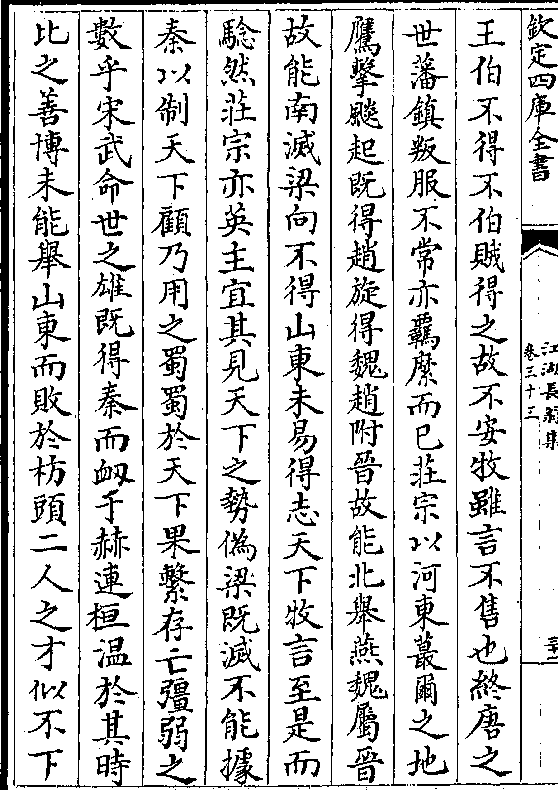 欽定四庫全書
江湖長翁集
卷三十三
王伯不得不伯賊得之故不安牧雖言不售也終唐之
世藩鎮叛服不常亦羈縻而已莊宗以河東蕞爾之地
鷹擊飈起既得趙旋得魏趙附晉故能北舉燕魏屬晉
故能南滅梁向不得山東未易得志天下牧言至是而
驗然莊宗亦英主宜其見天下之勢偽梁既滅不能據
秦以制天下顧乃用之蜀蜀於天下果繫存亡彊弱之
數乎宋武命世之雄既得秦而衂于赫連桓温於其時
比之善博未能舉山東而敗於枋頭二人之才似不下